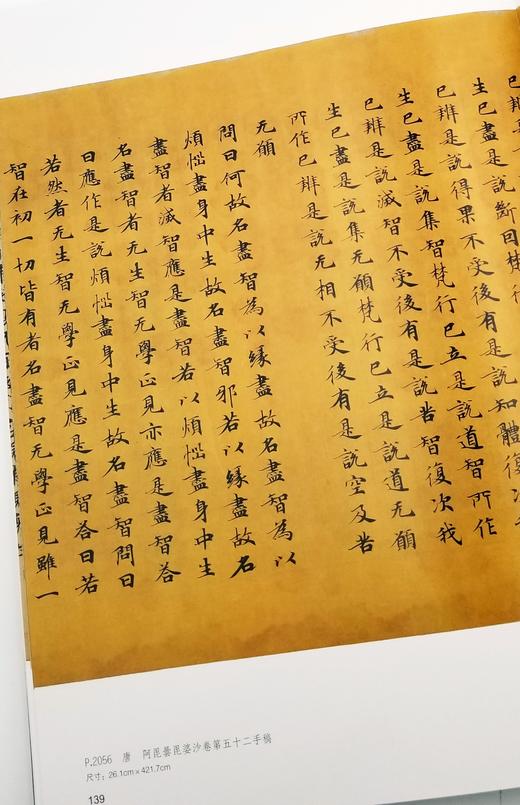 已辨是
生已盡是說斷因梵
已辨是說得果不受後有是說知體復次
生已盡是說集智梵行已立是說道智所作
已辨是說滅智不受後有是說苦智復次我
生已盡是說集无願梵行已立是說道无願
所作已辨是說无相不受後有是說空及苦
无願
問曰何故名盡智為以緣盡故名盡智為以
煩惱盡身中生故名盡智邪若以緣盡故名
盡智者滅智應是盡智若以煩惱盡身中生
名盡智者无生智无學正見亦應是盡智荅
曰應作是說煩惱盡身中生故名盡智問曰
若然者无生智无學正見應是盡智荅曰若
智在初一切皆有者名盡智无學正見雖一
P.2056 唐 阿毘曇毘婆沙卷第五十二手稿
尺寸：26.1cm×421.7cm
139